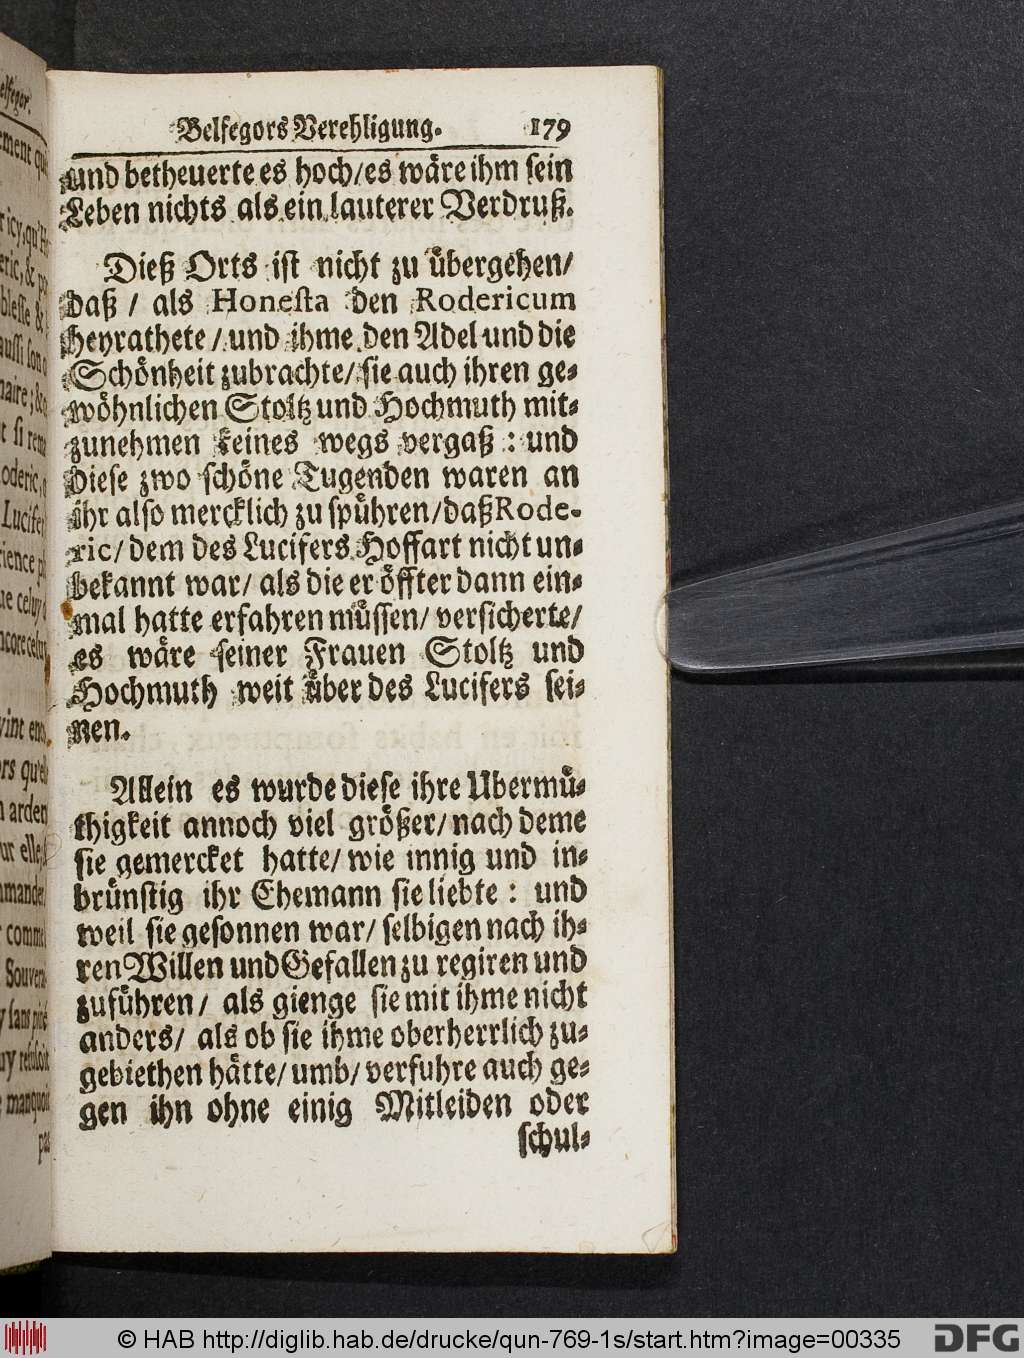 elfegor.
ement qu
ricy, qu'H
eric, & po
blesse &
aussi son o
naire; &
t si rem
oderic, q
Lucifer
rience pl
ue celuy d
ncore celuy
vint enc
ors qu'el
n arden
ur elle,
mmander
comme
Souvera
y sans pitié
uy refusoit
e manquoit
pas
Belfegors Verehligung. 179
und betheuerte es hoch/es wäre ihm sein
Leben nichts als ein lauterer Verdruß.
Dieß Orts ist nicht zu übergehen/
daß / als Honesta den Rodericum
heyrathete / und ihme den Adel und die
Schönheit zubrachte/ sie auch ihren ge-
wöhnlichen Stoltz und Hochmuth mit-
zunehmen keines wegs vergaß : und
diese zwo schöne Tugenden waren an
ihr also mercklich zu spühren/ daß Rode-
ric/ dem des Lucifers Hoffart nicht un-
bekannt war/ als die er öffter dann ein-
mal hatte erfahren müssen/ versicherte/
es wäre seiner Frauen Stoltz und
Hochmuth weit über des Lucifers sei-
nen.
Allein es wurde diese ihre Ubermü-
thigkeit annoch viel größer/ nach deme
sie gemercket hatte/ wie innig und in-
brünstig ihr Ehemann sie liebte : und
weil sie gesonnen war/ selbigen nach ih-
ren Willen und Gefallen zu regiren und
zuführen/ als gienge sie mit ihme nicht
anders/ als ob sie ihme oberherrlich zu-
gebiethen hätte/ umb/ verfuhre auch ge-
gen ihn ohne einig Mitleiden oder
schul-
© HAB http://diglib.hab.de/drucke/qun-769-1s/start.htm?image=00335
DFG